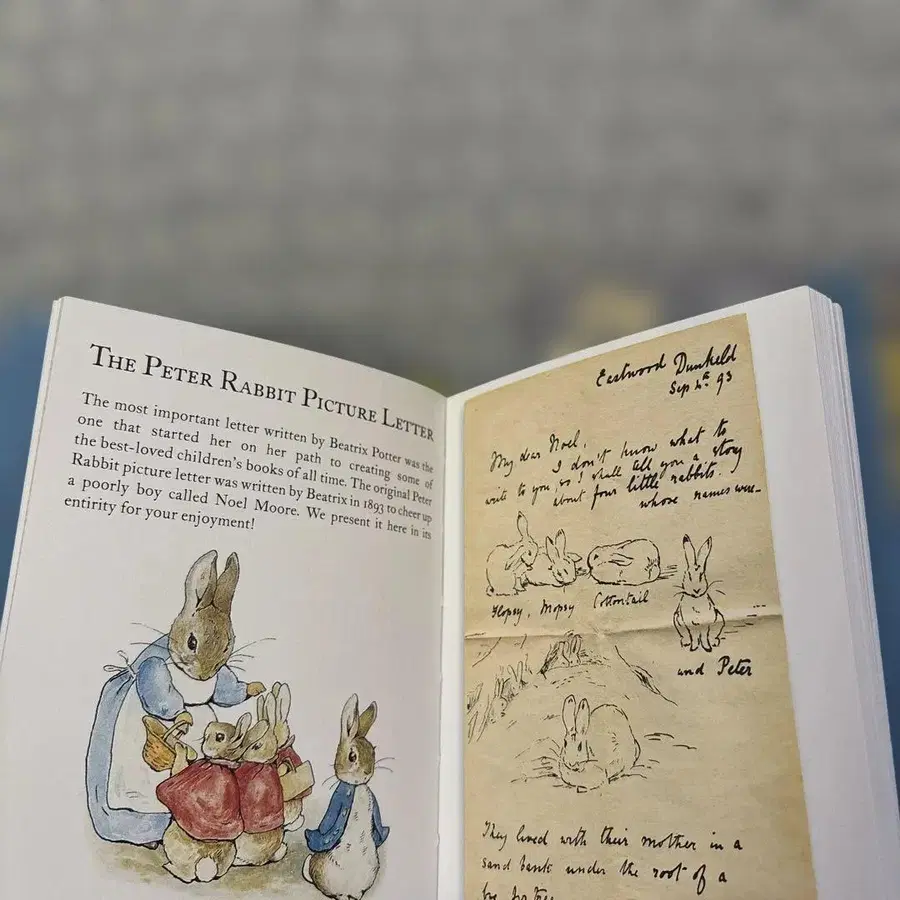 THE PETER RABBIT PICTURE LETTER
The most important letter written by Beatrix Potter was the
one that started her on her path to creating some of
the best-loved children's books of all time. The original Peter
Rabbit picture letter was written by Beatrix in 1893 to cheer up
a poorly boy called Noel Moore. We present it here in its
entirity for your enjoyment!
Eastwood Dunkeld
Sep 4th 93
My dear Noel,
I don't know what to
write to you, so I shall tell you a story
about four little rabbits.
whose names were_
Flopsy, Mopsy Cottontail
and Peter
They lived with their mother in a
sand bank under the root of a